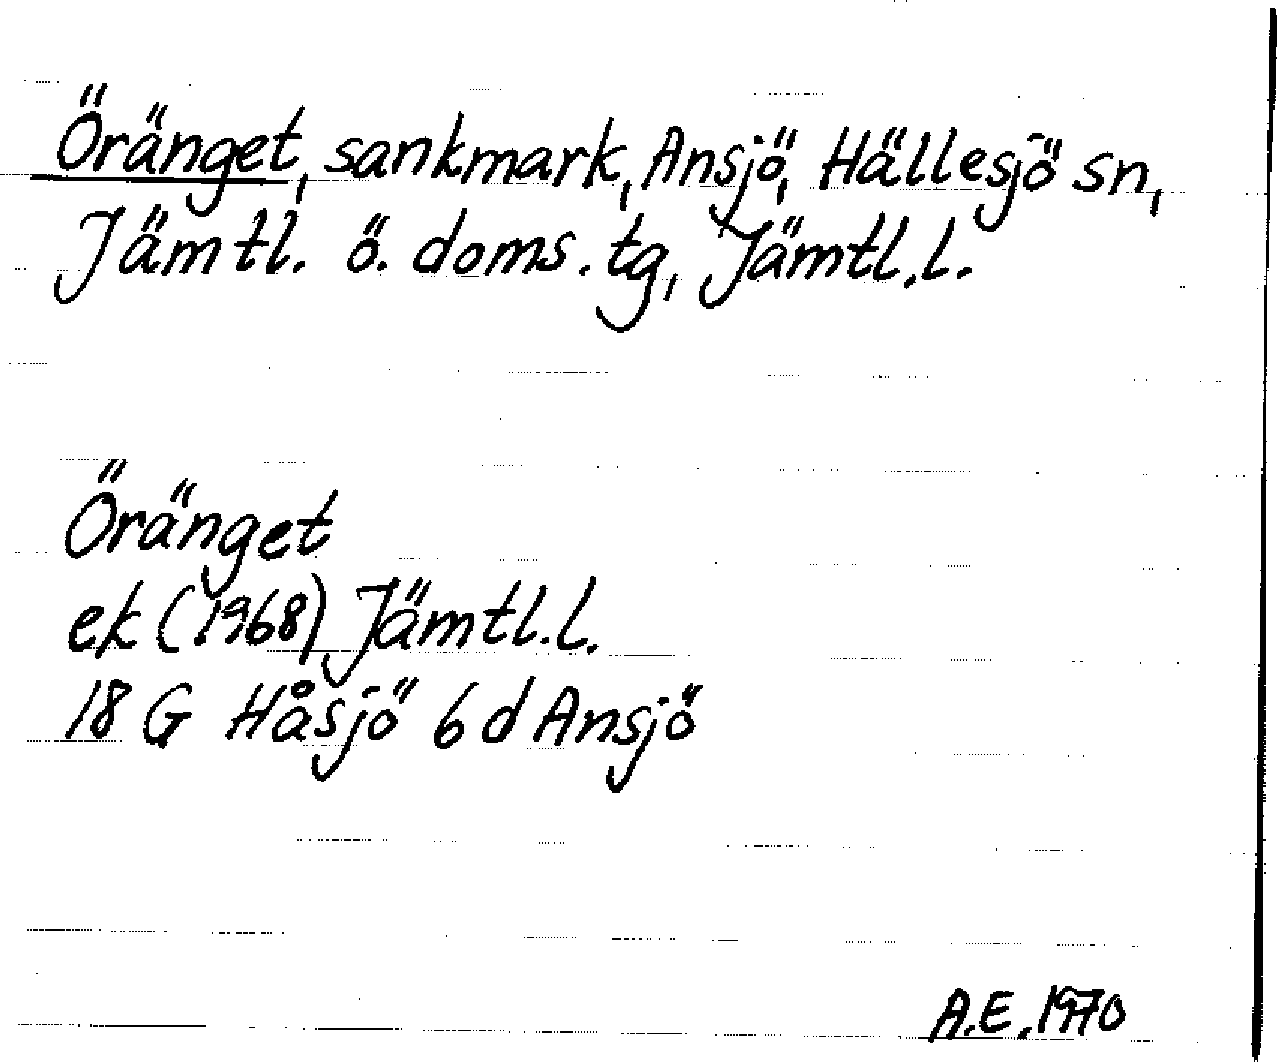 Öränget, sankmark, Ansjö, Hällesjö sn,
Jämtl. ö. doms. tg, Jämtl.l.
Öränget
ek (1968) Jämtl.l.
18 G Håsjö 6 d Ansjö
A.E. 1970